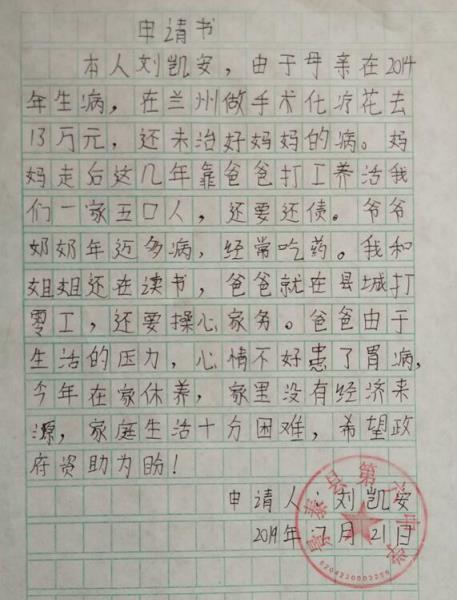 申请书
本人刘凯安，由于母亲在2014
年生病，在兰州做手术化疗花去
13万元，还未治好妈妈的病。妈
妈走后这几年靠爸爸打工养活我
们一家五口人，还要还债。爷爷
奶奶年迈多病，经常吃药。我和
姐姐还在读书，爸爸就在县城打
零工，还要操心家务。爸爸由于
生活的压力，心情不好患了胃病，
今年在家休养，家里没有经济来
源，家庭生活十分困难，希望政
府资助为盼！
申请人：刘凯安
2019年7月21日
景泰县第
中学
6204230003256